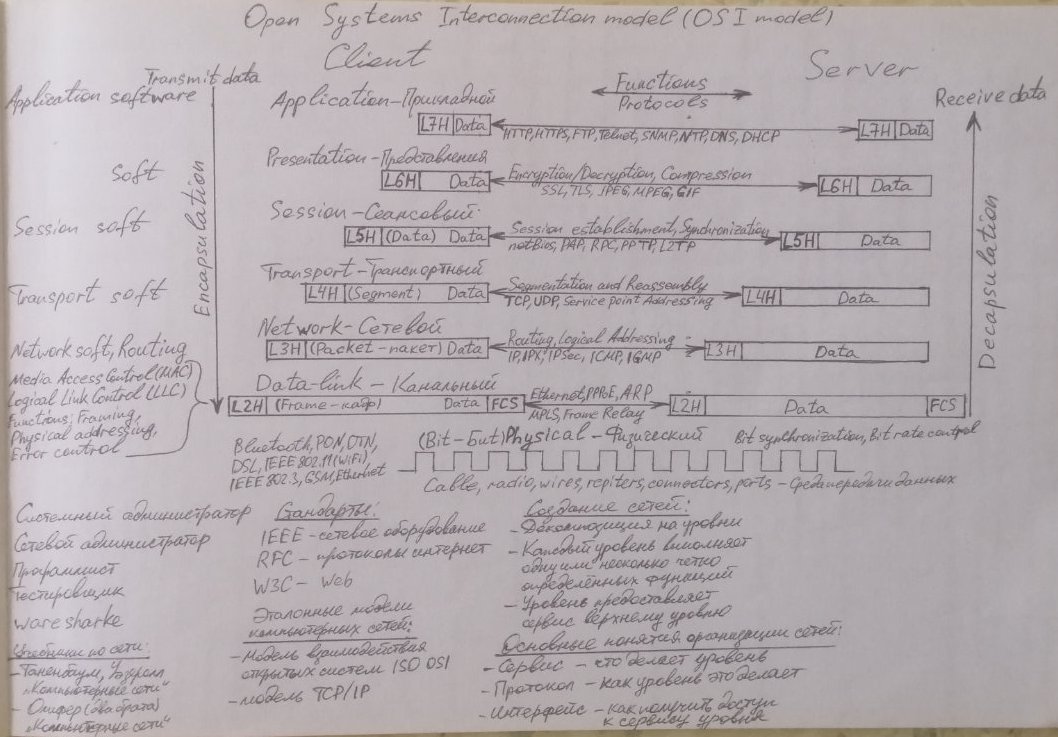 Open Systems Interconnection model (OSI model)
Client
Server
Transmit data
Application software
Functions
Protocols
Receive data
Application-Прикладной
L7H Data
HTTP, HTTPS, FTP, Telnet, SNMP, NTP, DNS, DHCP
L7H Data
Soft
Presentation-Представления
L6H Data
Encryption/Decryption, Compression
SSL, TLS, JPEG, MPEG, GIF
L6H Data
Encapsulation
Decapsulation
Session soft
Session-Сеансовый
L5H (Data) Data
Session establishment, Synchronization
netBios, PAP, RPC, PPTP, L2TP
L5H Data
Transport soft
Transport-Транспортный
L4H (Segment) Data
Segmentation and Reassembly
TCP, UDP, Service point Addressing
L4H Data
Network soft, Routing
Network-Сетевой
L3H (Packet-пакет) Data
Routing, Logical Addressing
IP, IPX, IPSec, ICMP, IGMP
L3H Data
Media Access Control (MAC)
Logical Link Control (LLC)
Functions; Framing,
Physical addressing,
Error control
Data-link – Канальный
L2H (Frame-кадр) Data FCS
Ethernet, PPPoE, ARP
MPLS, Frame Relay
L2H Data FCS
Bluetooth, PON, OTN,
DSL, IEEE 802.11 (WiFi)
IEEE 802.3, GSM, Ethernet
(Bit-Бит) Physical – Физический
Bit synchronization, Bit rate control
Cable, radio, wires, repiters, connectors, ports – Среда передачи данных
Системный администратор
Сетевой администратор
Программист
Тестировщик
ware sharke
Учебники по сети:
- Таненбаум, Уэзролл
"Компьютерные сети"
- Олифер (два брата)
"Компьютерные сети"
Стандарты:
IEEE – сетевое оборудование
RFC – протоколы интернет
W3C – Web
Эталонные модели
компьютерных сетей:
- Модель взаимодействия
открытых систем ISO OSI
- модель TCP/IP
Создание сетей:
- Декомпозиция на уровни
- Каждый уровень выполняет
одну или несколько четко
определённых функций
- Уровень предоставляет
сервис верхнему уровню
Основные понятия организации сетей:
- Сервис – что делает уровень
- Протокол – как уровень это делает
- Интерфейс – как получить доступ
к сервису уровня